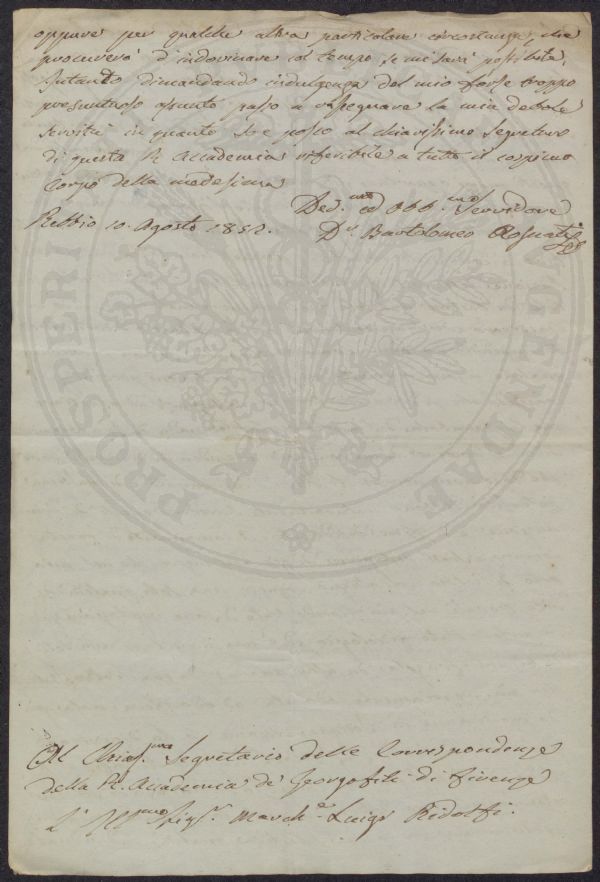 oppure per qualche altra particolare circostanza, che
procurerò d'indovinare col tempo se mi sarà possibile.
Intanto dimandando indulgenza del mio forse troppo
presuntuoso assunto passo a rassegnare la mia debole
servitù in quanto so e posso al chiarissimo Segretario
di questa R. Accademia riferibile a tutto il cospicuo
Corpo della medesima
Ded.mo ed Obb.mo Servidore
Rebbio 10. Agosto 1852. D.r Bartolomeo
Al Chias.mo Segretario delle Corrispondenze
della R. Accademia de Georgofili di Firenze
L'Ill.mo Sig.r March.e Luigi Ridolfi.
PROSPERI AUGENDAE